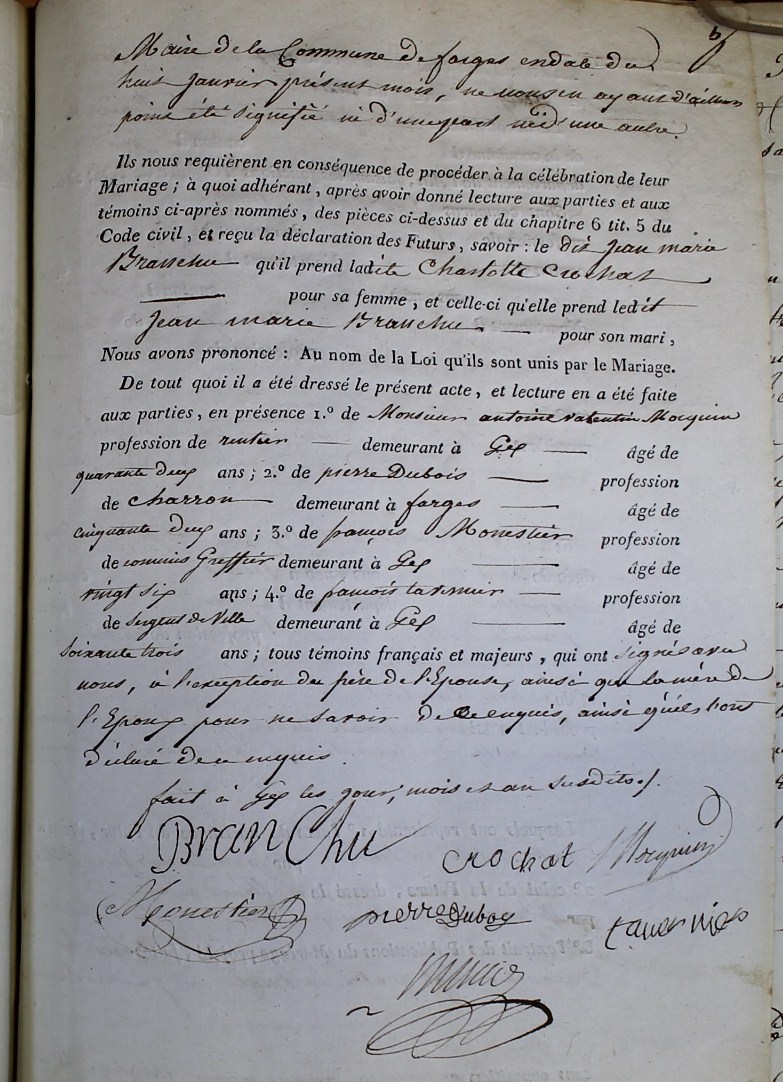 Maire de la Commune de farges en date du
huit Janvier présent mois, ne nous en ayant d'ailleurs
point été signifié ni d'une part ni d'une autre.
Ils nous requièrent en conséquence de procéder à la célébration de leur
Mariage ; à quoi adhérant, après avoir donné lecture aux parties et aux
témoins ci-après nommés, des pièces ci-dessus et du chapitre 6 tit. 5 du
Code civil, et reçu la déclaration des Futurs, savoir : le dit Jean marie
Branchu qu'il prend ladite Charlotte Crochat
pour sa femme, et celle-ci qu'elle prend ledit
Jean marie Branchu. pour son mari,
Nous avons prononcé : Au nom de la Loi qu'ils sont unis par le Mariage.
De tout quoi il a été dressé le présent acte, et lecture en a été faite
aux parties, en présence 1.º de Monsieur antoine valentin Mocquin
profession de rentier demeurant à Gex âgé de
quarante deux ans ; 2.º de pierre Dubois profession
de charron demeurant à farges âgé de
cinquante deux ans ; 3.º de françois Monestier profession
de commis Greffier demeurant à Gex âgé de
vingt six ans ; 4.º de françois tavernier profession
de Sergent de Ville demeurant à Gex âgé de
soixante trois ans ; tous témoins français et majeurs, qui ont signés avec
nous, à l'exception du père de l'Epouse, ainsi que la mère de
l'Epoux pour ne savoir de ce enquis, ainsi qu'ils l'ont
déclaré de ce enquis.
fait à Gex les jour, mois et an susdits.
Branchu
Crochat Mocquin
Monestier pierre duboy tavernier